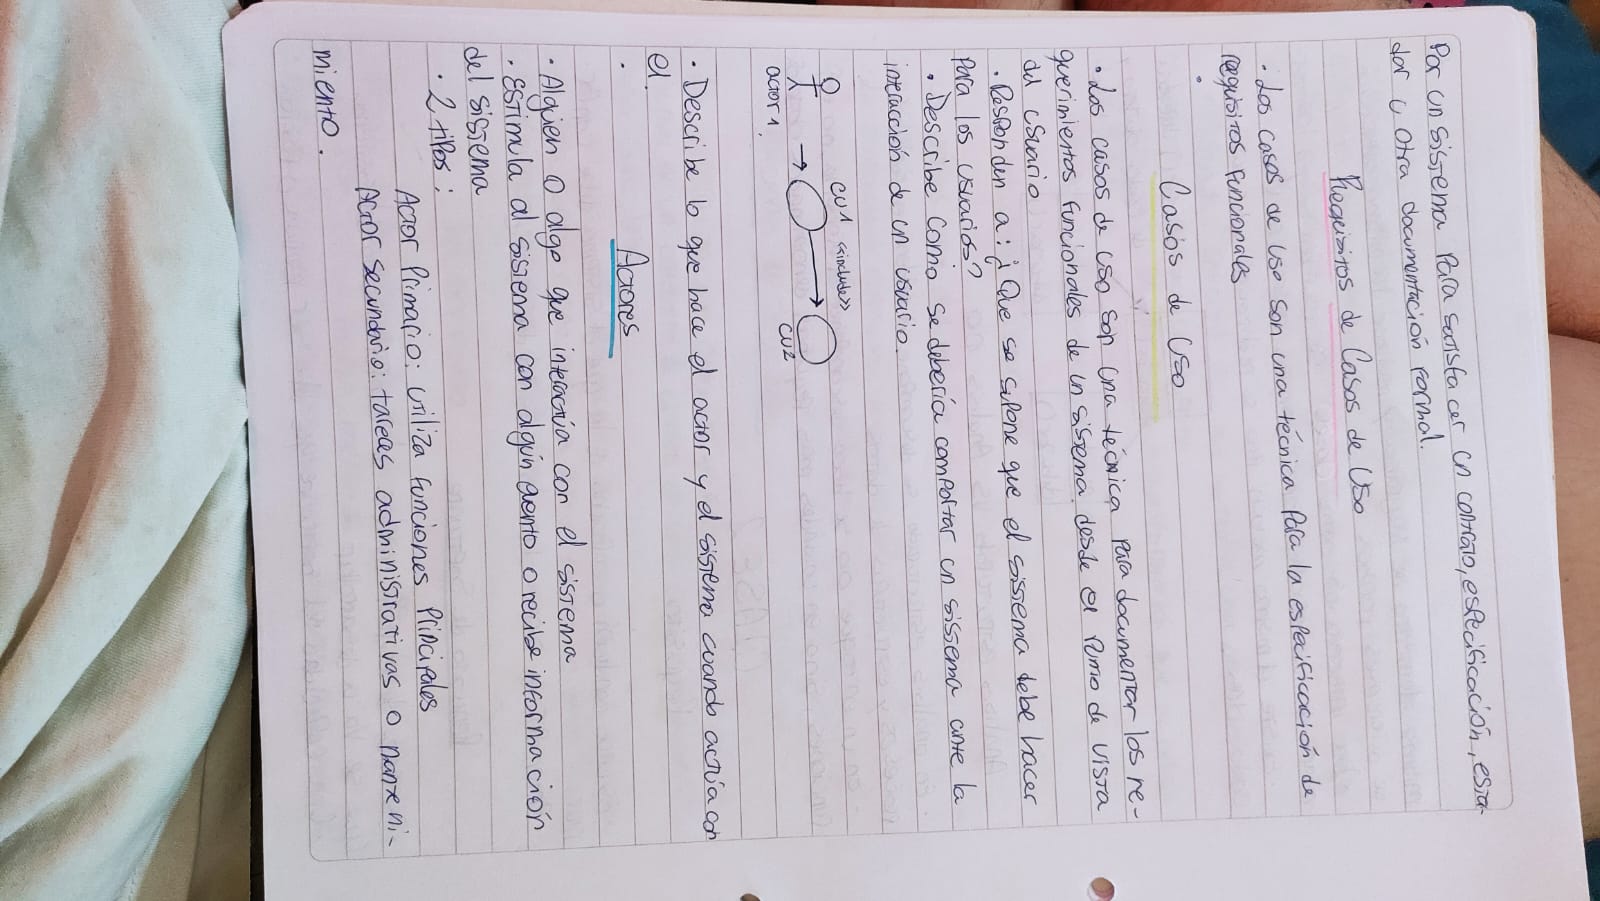 Por un sistema para satisfacer un contrato, especificación, estan-
dar u otra documentación formal.
Requisitos de Casos de Uso
· Los casos de uso son una técnica para la especificación de
requisitos funcionales
·
Casos de Uso
· Los casos de uso son una técnica para documentar los re-
querimientos funcionales de un sistema desde el punto de vista
del usuario
· Responden a: ¿Que se supone que el sistema debe hacer
para los usuarios?
· Describe como se debería comportar un sistema ante la
interacción de un usuario.
CU1 <<include>>
actor 1.
CU2
· Describe lo que hace el actor y el sistema cuando actúa con
el.
·
Actores
· Alguien o algo que interactúa con el sistema
· Estimula al sistema con algún evento o recibe información
del sistema
· 2 tipos:
Actor Primario: utiliza funciones principales
Actor secundario: tareas administrativas o manteni-
miento.